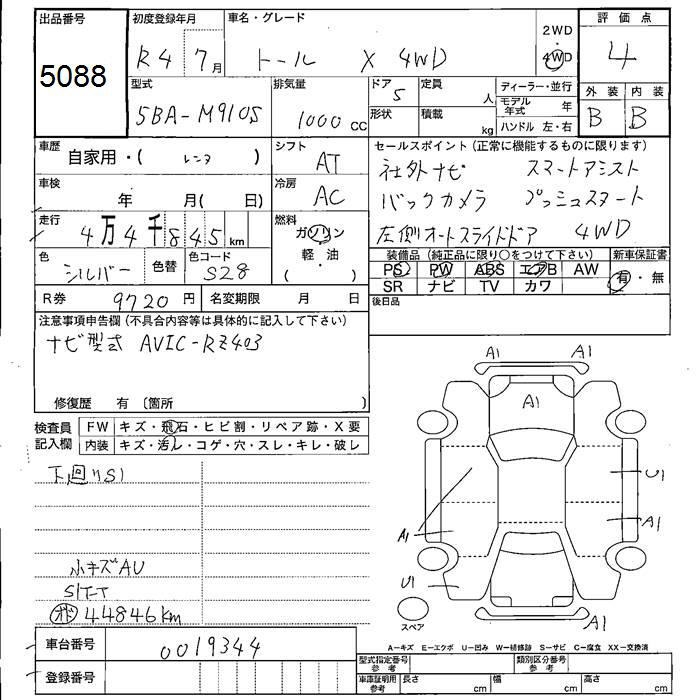 出品番号 初度登録年月 車名・グレード 評価点
5088 R4 7月 トール X 4WD 2WD 4WD 4
型式 排気量 ドア 定員 ディーラー・並行 外装 内装
5BA-M910S 1000 CC 5 人 モデル年式 年 B B
形状 積載 kg ハンドル 左・右
車歴 自家用・( レンタ ) シフト AT セールスポイント(正常に機能するものに限ります)
社外ナビ スマートアシスト
車検 年 月( 日) 冷房 AC バックカメラ プッシュスタート
走行 4万4千845km 燃料 ガソリン 軽・油 ( ) 左側オートスライドドア 4WD
色 シルバー 色替 色コード S28 装備品(純正品に限り○をつけて下さい) 新車保証書
PS PW ABS エアB AW 有・無
SR ナビ TV カワ
R券 9720円 名変期限 月 日 後日品
注意事項申告欄(不具合内容等は具体的に記入して下さい)
ナビ型式 AVIC-RZ403
修復歴 有 〔箇所 〕
検査員記入欄 FW キズ・飛石・ヒビ割・リペア跡・X要
内装 キズ・汚レ・コゲ・穴・スレ・キレ・破レ
下回りS1
小キズAU
44846km
A1 A1
A1
U1
A1 A1
U1
A1
スペア
車台番号 0019344
登録番号
A-キズ E-エクボ U-凹み W-補修跡 S-サビ C-腐食 XX-交換済
型式指定番号参考 類別区分番号参考
車庫証明用参考 長さ cm 幅 cm 高さ cm